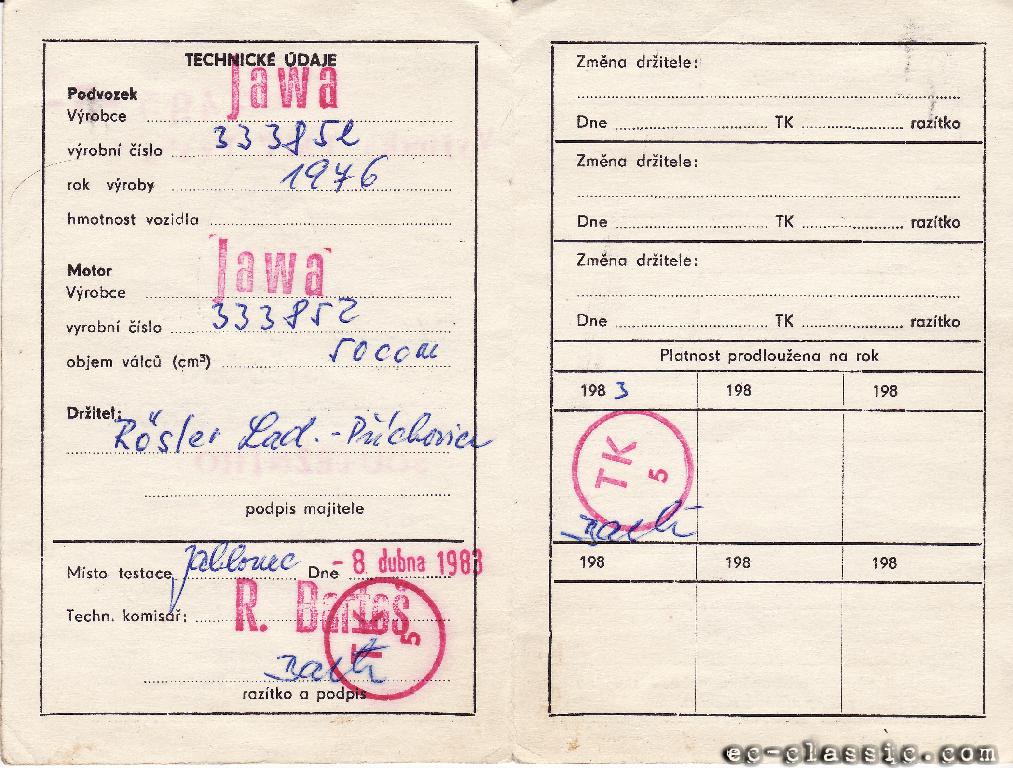 TECHNICKÉ ÚDAJE
Podvozek
Jawa
Výrobce
výrobní číslo 333852
rok výroby 1976
hmotnost vozidla
Motor
Jawa
Výrobce
vyrobní číslo 333852
objem válců (cm³) 500ccm
Držitel:
Rösler Lad. - Příchovice
podpis majitele
Místo testace Jablonec Dne - 8. dubna 1983
Techn. komisař: R. Bartoš
TK 5
razítko a podpis
Změna držitele:
Dne TK razítko
Změna držitele:
Dne TK razítko
Změna držitele:
Dne TK razítko
Platnost prodloužena na rok
198 3 198 198
TK 5
198 198 198
ec-classic.com